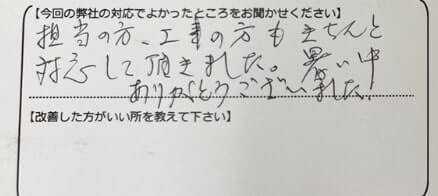 【今回の弊社の対応でよかったところをお聞かせください】
担当の方、工事の方もきちんと
対応して頂きました。暑い中
ありがとうございました
【改善した方がいい所を教えて下さい】